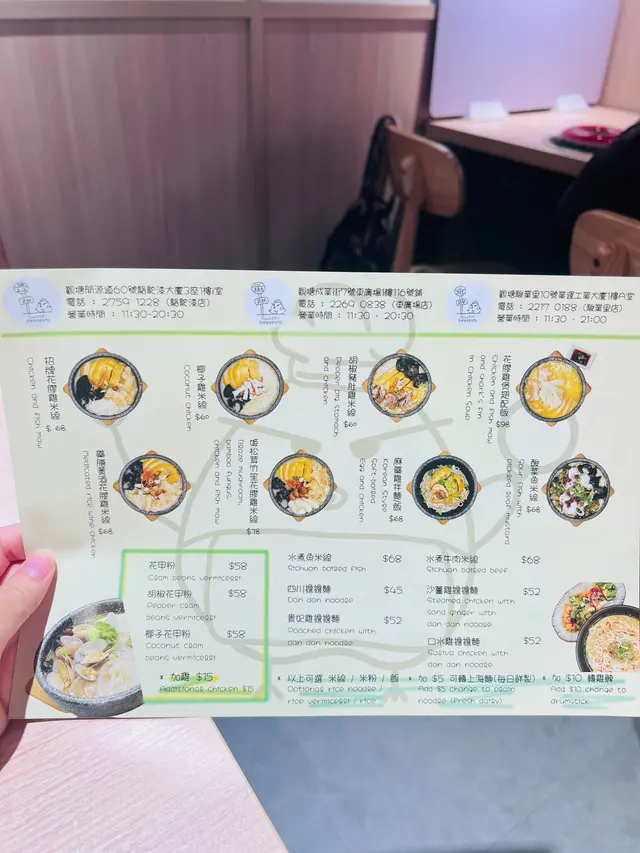 觀塘開源道60號駱駝漆大廈3座1樓I室
電話 : 2759 1228 (駱駝漆店)
營業時間 : 11:30-20:30
觀塘成業街7號東廣場1樓116號鋪
電話 : 2269 0838 (東廣場店)
營業時間 : 11:30 - 20:30
觀塘駿業里10號業運工業大廈1樓A室
電話 : 2217 0188 (駿業里店)
營業時間 : 11:30 - 21:00
招牌花膠雞米線
Chicken and fish maw
$ 68
椰子雞米線
Coconut chicken
$60
胡椒豬肚雞米線
Pepper pig stomach
and chicken
$60
花膠雞煲翅配飯
Chicken and fish maw
and shark's fin
in chicken soup
$98
藥膳黃酒花膠雞米線
Medicated rice wine chicken
$68
姬松茸竹笙花膠雞米線
Blaze mushroom,
bamboo fungus,
chicken and fish maw
$78
麻藥雞拌麵飯
Korean Style
Soft-boiled
Egg and chicken
$68
酸菜魚米線
Sour fish with
pickled leaf-mustard
$68
花甲粉 $58
Clam beans vermicelli
胡椒花甲粉 $58
Pepper clam
beans vermicelli
椰子花甲粉 $58
Coconut clam
beans vermicelli
* 加雞 $15
Additional chicken $15
水煮魚米線 $68
Sichuan boiled fish
四川擔擔麵 $45
Dan dan noodle
貴妃雞擔擔麵 $52
Poached chicken with
dan dan noodle
水煮牛肉米線 $68
Sichuan boiled beef
沙薑雞擔擔麵 $52
Steamed chicken with
sand ginger with
dan dan noodle
口水雞擔擔麵 $52
Saliva chicken with
dan dan noodle
* 以上可選 米線 / 米粉 / 飯
Optional rice noodle /
rice vermicelli / rice
* 加 $5 可轉上海麵(每日鮮製)
Add $5 change to plain
noodle (fresh daily)
* 加 $10 轉雞髀
Add $10 change to
drumstick